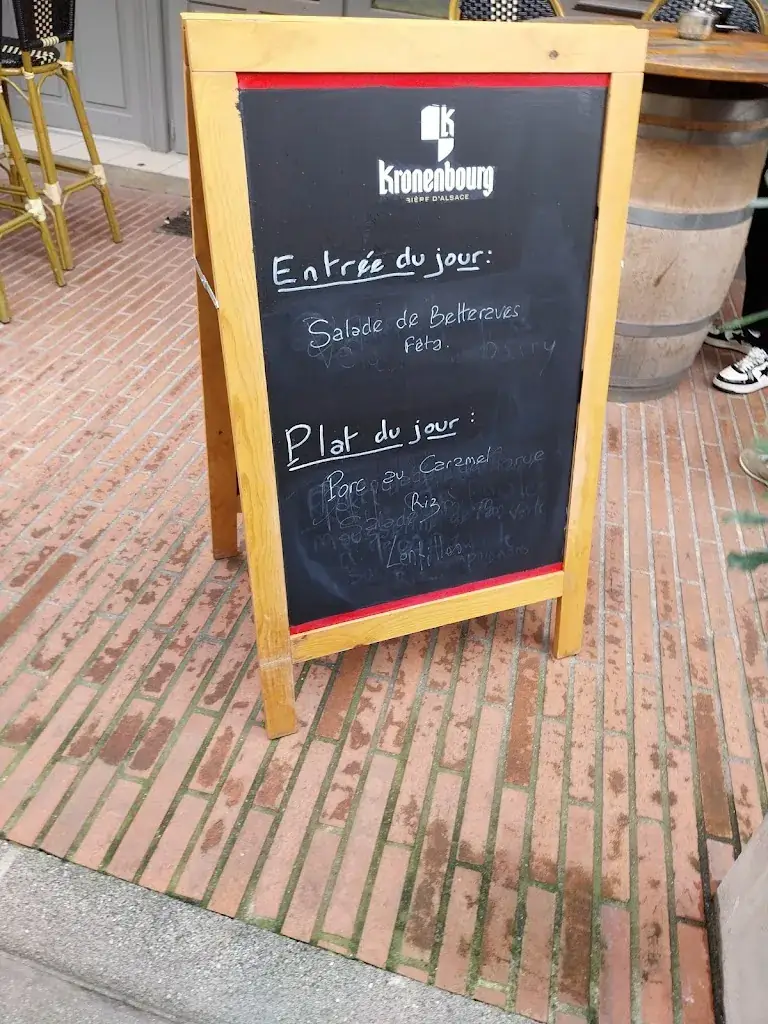 K
Kronenbourg
BIÈRE D'ALSACE
Entrée du jour:
Salade de Betteraves
Féta.
Plat du jour:
Porc au Caramel
Riz